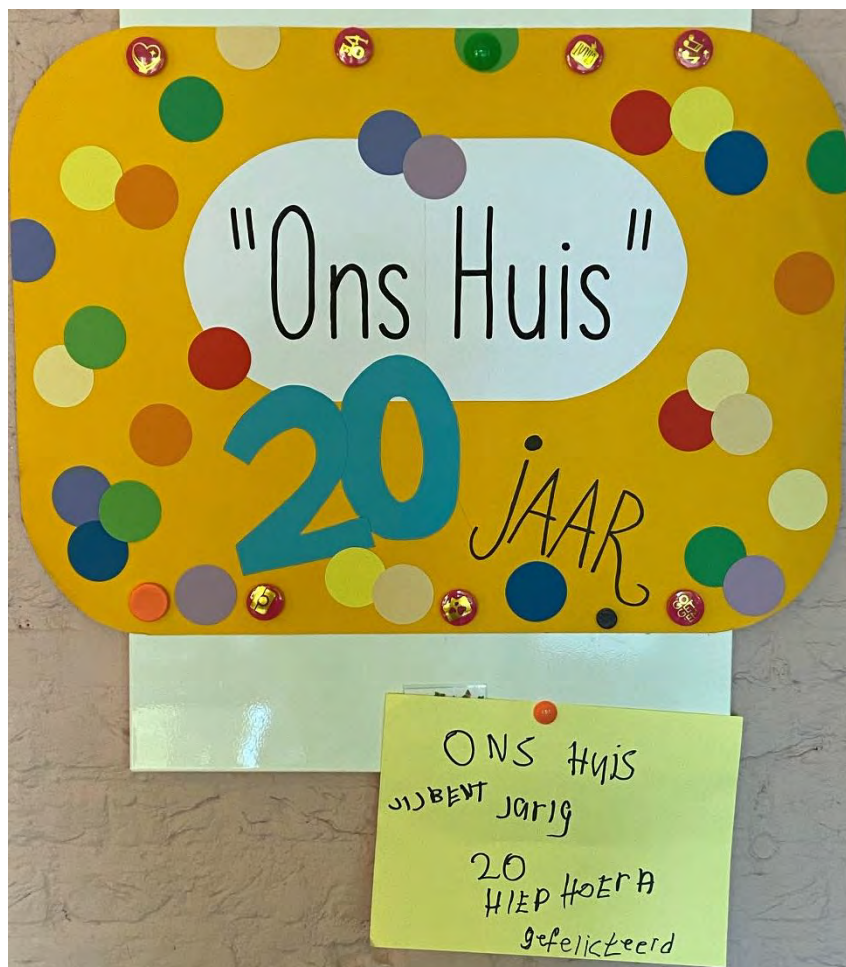 "Ons Huis"
20 jAAR
ONS HUiS
JIJ BENT jarig
20
HIEP HOErA
gefelicteerd